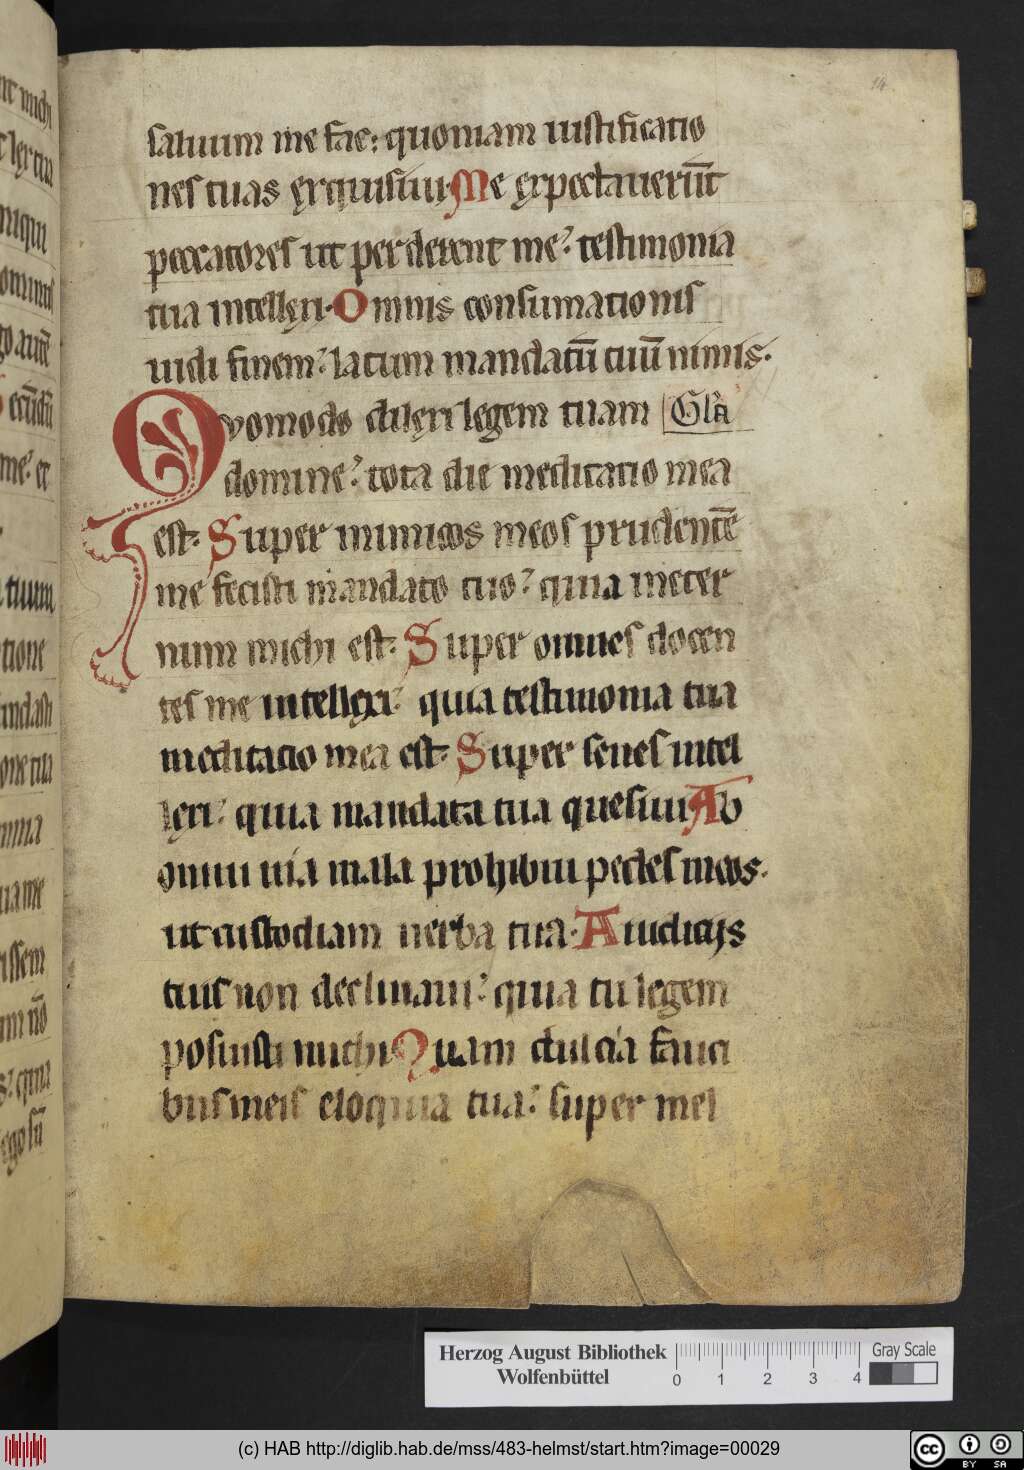 14
saluum me fac: quoniam iustificatio
nes tuas exquisiui. Me expectauerūt
peccatores ut perderent me: testimonia
tua intellexi. Omnis consumationis
uidi finem: latum mandatū tuū nimis.
Quomodo dilexi legem tuam Gla
domine: tota die meditatio mea
est. Super inimicos meos prudentē
me fecisti mandato tuo: quia in eter
num michi est. Super omnes docen
tes me intellexi: quia testimonia tua
meditatio mea est. Super senes intel
lexi: quia mandata tua quesiui Ab
omni uia mala prohibui pedes meos.
ut custodiam uerba tua. A iudicijs
tuis non declinaui: quia tu legem
posuisti michi Quam dulcia fauci
bus meis eloquia tua: super mel
Herzog August Bibliothek
Wolfenbüttel
0 1 2 3 4
Gray Scale
(c) HAB http://diglib.hab.de/mss/483-helmst/start.htm?image=00029
cc BY SA